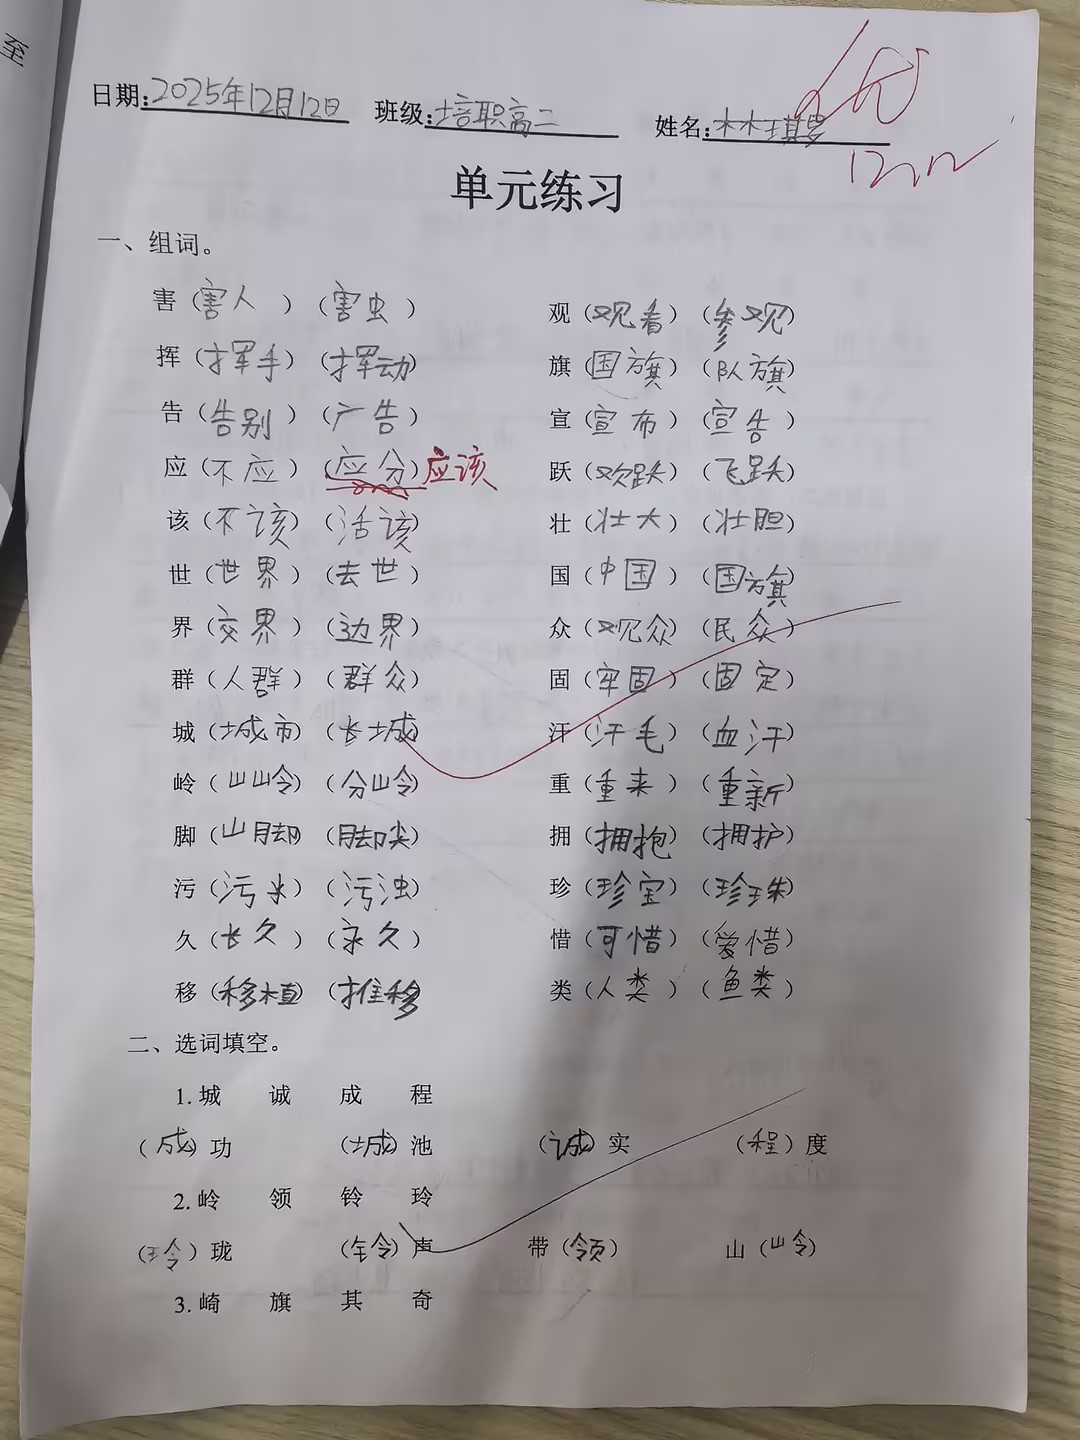 至
日期:2025年12月12日 班级:培职高二 姓名:林琪罗
优
12.12
单元练习
一、组词。
害（害人）（害虫） 观（观看）（参观）
挥（挥手）（挥动） 旗（国旗）（队旗）
告（告别）（广告） 宣（宣布）（宣告）
应（不应）（应分）应该 跃（欢跃）（飞跃）
该（不该）（活该） 壮（壮大）（壮胆）
世（世界）（去世） 国（中国）（国旗）
界（交界）（边界） 众（观众）（民众）
群（人群）（群众） 固（牢固）（固定）
城（城市）（长城） 汗（汗毛）（血汗）
岭（山岭）（分岭） 重（重来）（重新）
脚（山脚）（脚尖） 拥（拥抱）（拥护）
污（污水）（污浊） 珍（珍宝）（珍珠）
久（长久）（永久） 惜（可惜）（爱惜）
移（移植）（推移） 类（人类）（鱼类）
二、选词填空。
1.城 诚 成 程
（成）功 （城）池 （诚）实 （程）度
2.岭 领 铃 玲
（玲）珑 （铃）声 带（领） 山（岭）
3.崎 旗 其 奇